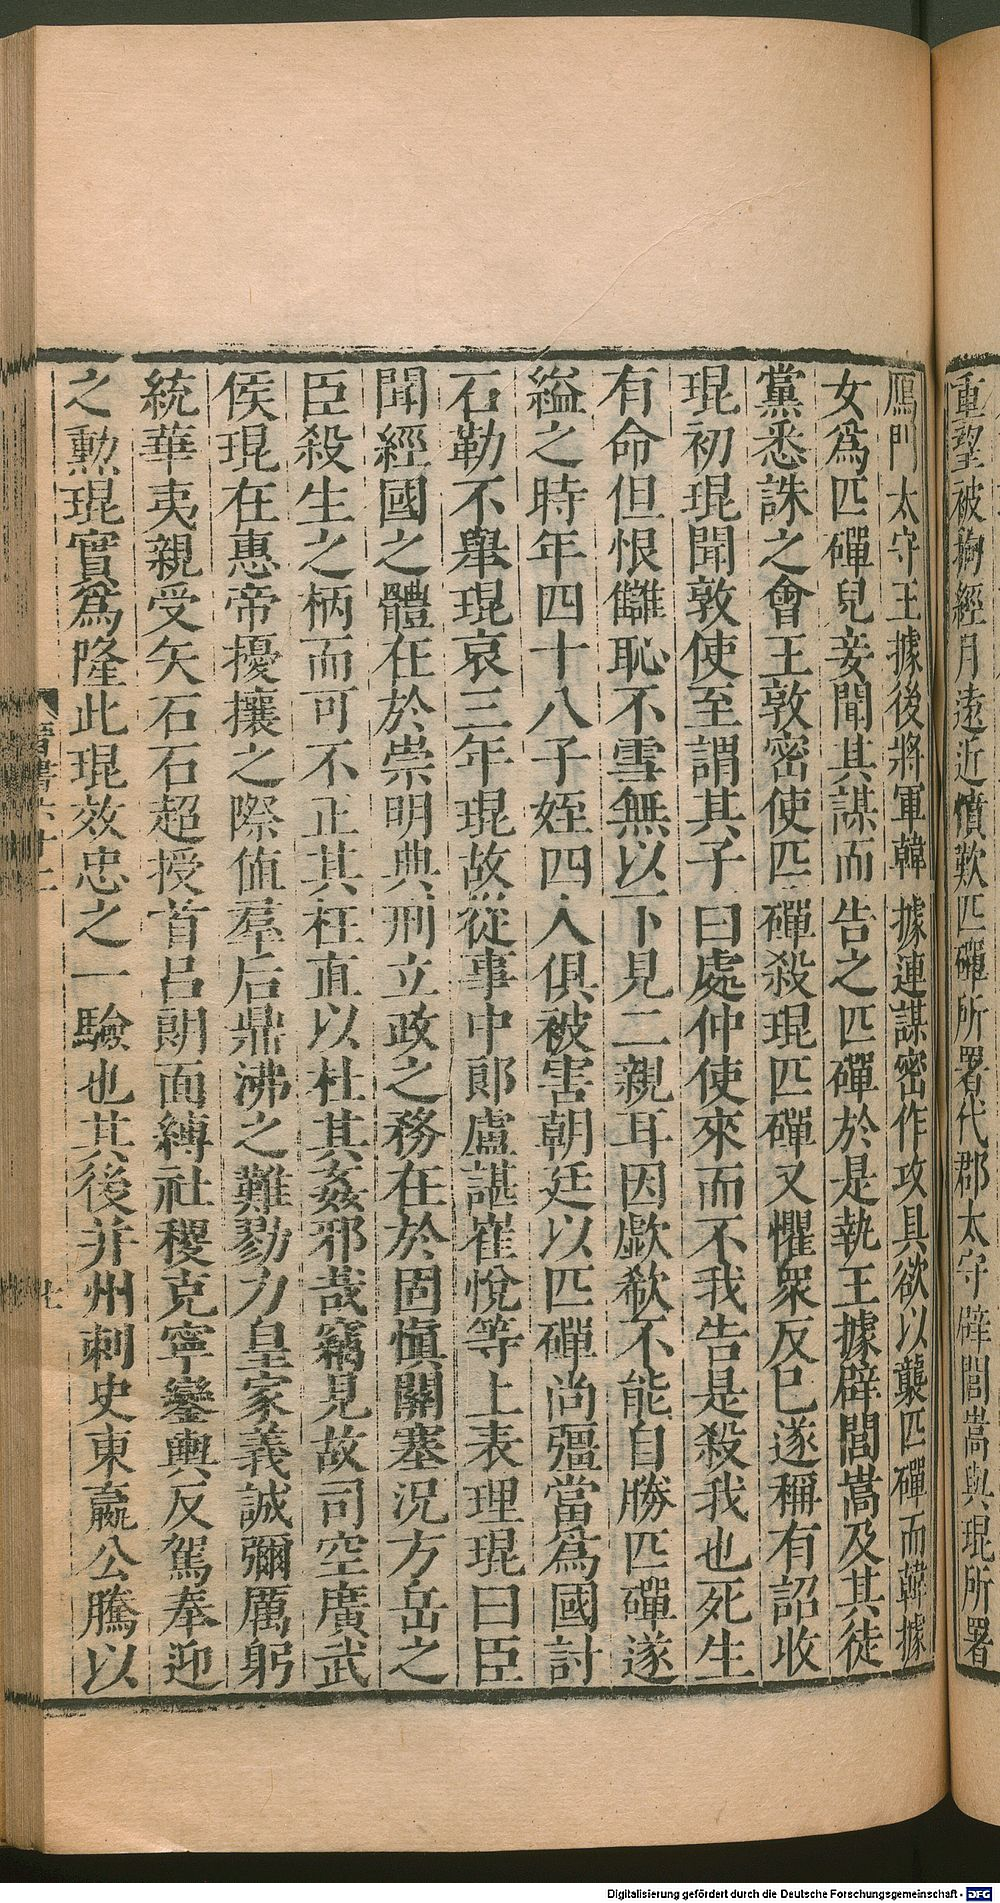 重望被拘經月遠近憤歎匹磾所署代郡太守辟閭嵩與琨所署
鴈門太守王據後將軍韓據連謀密作攻具欲以襲匹磾而韓據
女爲匹磾兒妾聞其謀而告之匹磾於是執王據辟閭嵩及其徒
黨悉誅之會王敦密使匹磾殺琨匹磾又懼衆反巳遂稱有詔收
琨初琨聞敦使至謂其子曰處仲使來而不我告是殺我也死生
有命但恨讎恥不雪無以下見二親耳因歔欷不能自勝匹磾遂
縊之時年四十八子姪四人俱被害朝廷以匹磾尚彊當爲國討
石勒不舉琨哀三年琨故從事中郞盧諶崔悅等上表理琨曰臣
聞經國之體在於崇明典刑立政之務在於固愼關塞況方岳之
臣殺生之柄而可不正其枉直以杜其姦邪哉竊見故司空廣武
侯琨在惠帝擾攘之際値羣后鼎沸之難勠力皇家義誠彌厲躬
統華夷親受矢石石超授首呂朗面縛社稷克寧鑾輿反駕奉迎
之勲琨實爲隆此琨效忠之一驗也其後并州刺史東嬴公騰以
晉書六十二
七
Digitalisierung gefördert durch die Deutsche Forschungsgemeinschaft - DFG